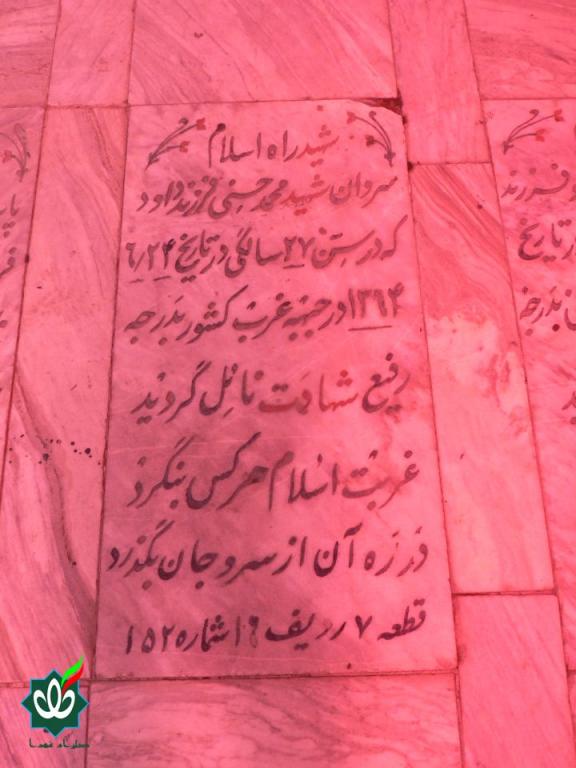 شهید راه اسلام
سروان شهید محمد حسنی فرزند داود
که در سن ۲۷ سالگی در تاریخ ۶/۲۴
۱۳۶۴ در جبهه غرب کشور بدرجه
رفیع شهادت نائل گردید
غربت اسلام هر کس بنگرد
در ره آن از سر و جان بگذرد
قطعه ۷ ردیف ۱۶ شماره ۱۵۲
فرزند
تاریخ
بدرجه